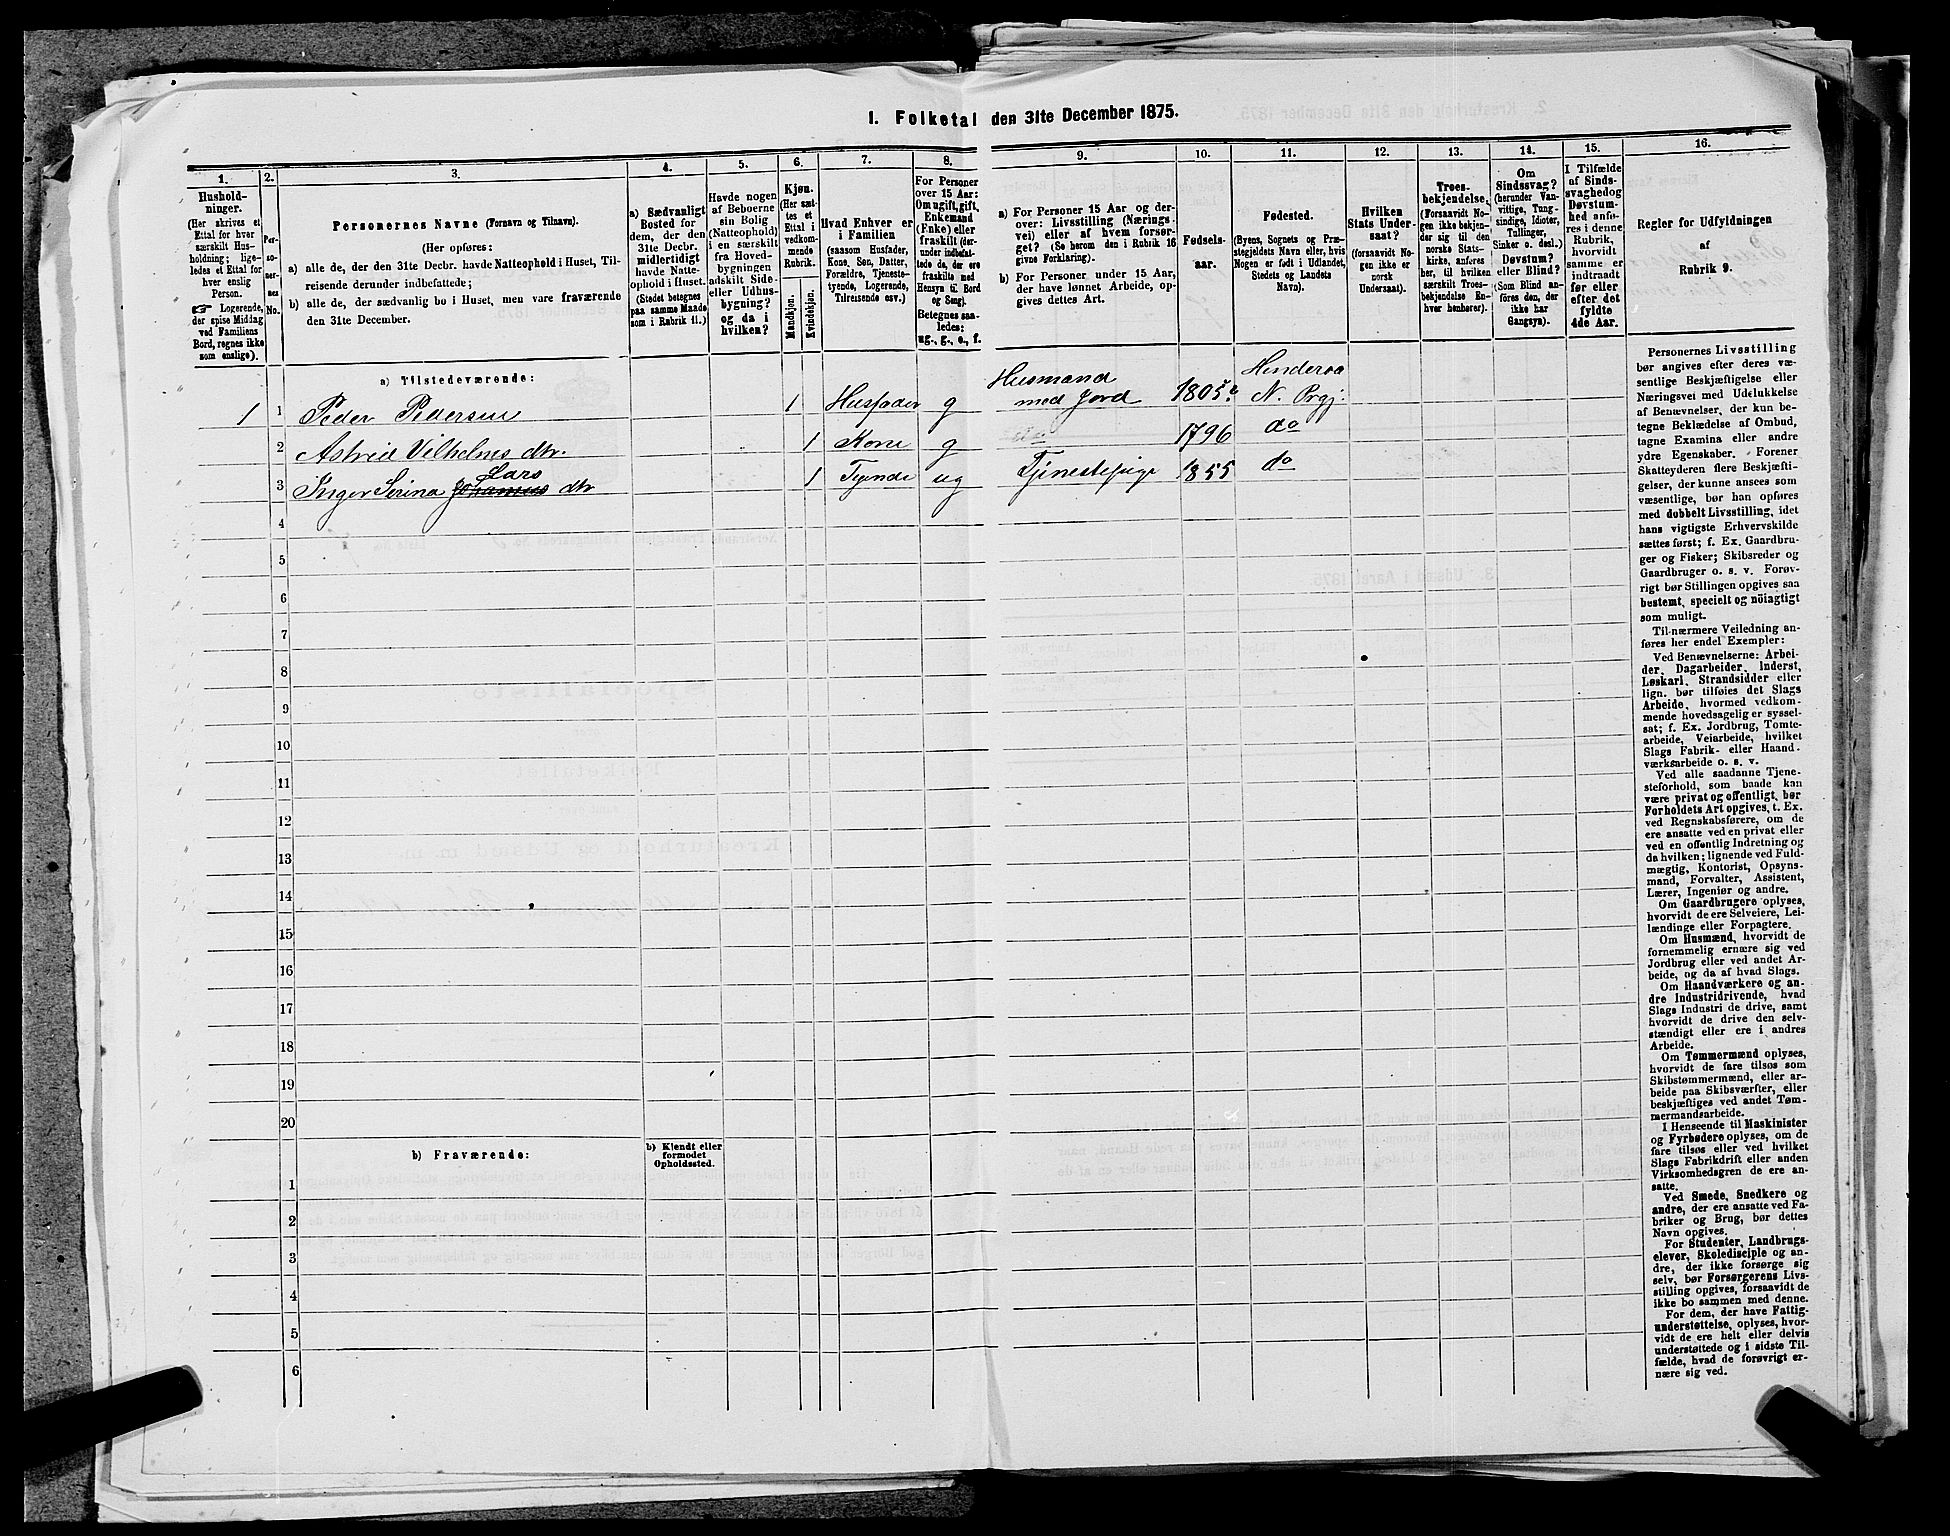 I. Folketal den 31te December 1875.
1.
Hushold-
ninger.
(Her skrives et
Ettal for hver
særskilt Hus-
holdning; lige-
ledes et Ettal for
hver enslig
Person.
☞ Logerende,
der spise Middag
ved Familiens
Bord, regnes ikke
som enslige).
2.
Per-
so-
ner-
nes
No.
3.
Personernes Navne (Fornavn og Tilnavn).
(Her opføres:
a) alle de, der den 31te Decbr. havde Natteophold i Huset, Til-
reisende derunder indbefattede;
b) alle de, der sædvanlig bo i Huset, men vare fraværende
den 31te December.
4.
a) Sædvanligt
Bosted for
dem, der den
31te Decbr.
midlertidigt
havde Natte-
ophold i Huset.
(Stedet betegnes
paa samme Maade
som i Rubrik 11.)
5.
Havde nogen
af Beboerne
sin Bolig
(Natteophold)
i en særskilt
fra Hoved-
bygningen
adskilt Side-
eller Udhus-
bygning?
og da i
hvilken?
6.
Kjøn.
(Her sæt-
tes et
Ettal i
vedkom-
mende
Rubrik.
Mandkjøn.
Kvindekjøn.
7.
Hvad Enhver er
i Familien
(saasom Husfader,
Kone, Søn, Datter,
Forældre, Tjeneste-
tyende, Logerende,
Tilreisende osv.)
8.
For Personer
over 15 Aar:
Om ugift, gift,
Enkemand
(Enke) eller
fraskilt (der-
under indbefat-
tede de, der ere
fraskilte med
Hensyn til Bord
og Seng).
Betegnes saa-
ledes:
ug., g., e., f.
9.
a) For Personer 15 Aar og der-
over: Livsstilling (Nærings-
vei) eller af hvem forsør-
get? (Se herom den i Rubrik 16
givne Forklaring).
b) For Personer under 15 Aar,
der have lønnet Arbeide, op-
gives dettes Art.
10.
Fødsels-
aar.
11.
Fødested.
(Byens, Sognets og Præ-
stegjeldets Navn eller, hvis
Nogen er født i Udlandet,
Stedets og Landets
Navn).
12.
Hvilken
Stats Under-
saat?
(forsaavidt No-
gen ikke er
norsk
Undersaat).
13.
Troes-
bekjendelse.
(Forsaavidt No-
gen ikke bekjen-
der sig til den
norske Stats-
kirke, anføres
her, til hvilken
særskilt Troes-
bekjendelse En-
hver henhører).
14.
Om
Sindssvag?
(herunder Van-
vittige, Tung-
sindige, Idioter,
Tullinger,
Sinker o. desl.).
Døvstum?
eller Blind?
(Som Blind an-
føres den, der
ikke har
Gangsyn).
15.
I Tilfælde
af Sinds-
svaghed og
Døvstum-
hed anfø-
res i denne
Rubrik,
hvorvidt
samme er
indtraadt
før eller
efter det
fyldte
4de Aar.
16.
Regler for Udfyldningen
af
Rubrik 9.
a) Tilstedeværende:
1 1 Peder Pedersen 1 Husfader g Husmand med Jord 1805 Hinderaa N. Prgj.
2 Astrid Vilhelmsdtr. 1 Kone g 1796 do
3 Inger Serina Johannes Lars dtr 1 Tyende ug Tjenestepige 1855 do
4
5
6
7
8
9
10
11
12
13
14
15
16
17
18
19
20
b) Fraværende:
b) Kjendt eller
formodet
Opholdssted.
1
2
3
4
5
6
Personernes Livsstilling
bør angives efter deres væ-
sentlige Beskjæftigelse eller
Næringsvei med Udelukkelse
af Benævnelser, der kun be-
tegne Beklædelse af Ombud,
tagne Examina eller andre
ydre Egenskaber. Forener
Skatteyderen flere Beskjæfti-
gelser, der kunne ansees som
væsentlige, bør han opføres
med dobbelt Livsstilling, idet
hans vigtigste Erhvervskilde
sættes først; f. Ex. Gaardbru-
ger og Fisker; Skibsreder og
Gaardbruger o. s. v. Forøv-
rigt bør Stillingen opgives saa
bestemt, specielt og nöiagtigt
som muligt.
Til nærmere Veiledning an-
føres her endel Exempler:
Ved Benævnelserne: Arbei-
der, Dagarbeider, Inderst,
Løskarl, Strandsidder eller
lign. bør tilføies det Slags
Arbeide, hvormed vedkom-
mende hovedsagelig er syssel-
sat; f. Ex. Jordbrug, Tomte-
arbeide, Veiarbeide, hvilket
Slags Fabrik- eller Haand-
værksarbeide o. s. v.
Ved alle saadanne Tjene-
steforhold, som baade kan
være privat og offentligt, bør
Forholdets Art opgives, t. Ex.
ved Regnskabsførere, om de
ere ansatte ved en privat eller
ved en offentlig Indretning og
da hvilken; lignende ved Fuld-
mægtig, Kontorist, Opsyns-
mand, Forvalter, Assistent,
Lærer, Ingeniør og andre.
Om Gaardbrugere oplyses,
hvorvidt de ere Selveiere, Lei-
lændinge eller Forpagtere.
Om Husmænd, hvorvidt de
fornemmelig ernære sig ved
Jordbrug eller ved andet Ar-
beide, og da af hvad Slags.
Om Haandværkere og an-
dre Industridrivende, hvad
Slags Industri de drive, samt
hvorvidt de drive den selv-
stændigt eller ere i andres
Arbeide.
Om Tømmermænd oplyses,
hvorvidt de fare tilsøs som
Skibstømmermænd, eller ar-
beide paa Skibsværfter, eller
beskjæftiges ved andet Tøm-
mermandsarbeide.
I Henseende til Maskinister
og Fyrbødere oplyses, om de
fare tilsøs eller ved hvilket
Slags Fabrikdrift eller anden
Virksomhedsgren de ere an-
satte.
Ved Smede, Snedkere og
andre, der ere ansatte ved Fa-
briker og Brug, bør dettes
Navn opgives.
For Studenter, Landbrugs-
elever, Skoledisciple og an-
dre, der ikke forsørge sig
selv, bør Forsørgerens Livs-
stilling opgives, forsaavidt de
ikke bo sammen med denne.
For dem, der have Fattig-
understøttelse, oplyses, hvor-
vidt de ere helt eller delvis
understøttede og i sidste Til-
fælde, hvad de forøvrigt er-
nære sig ved.